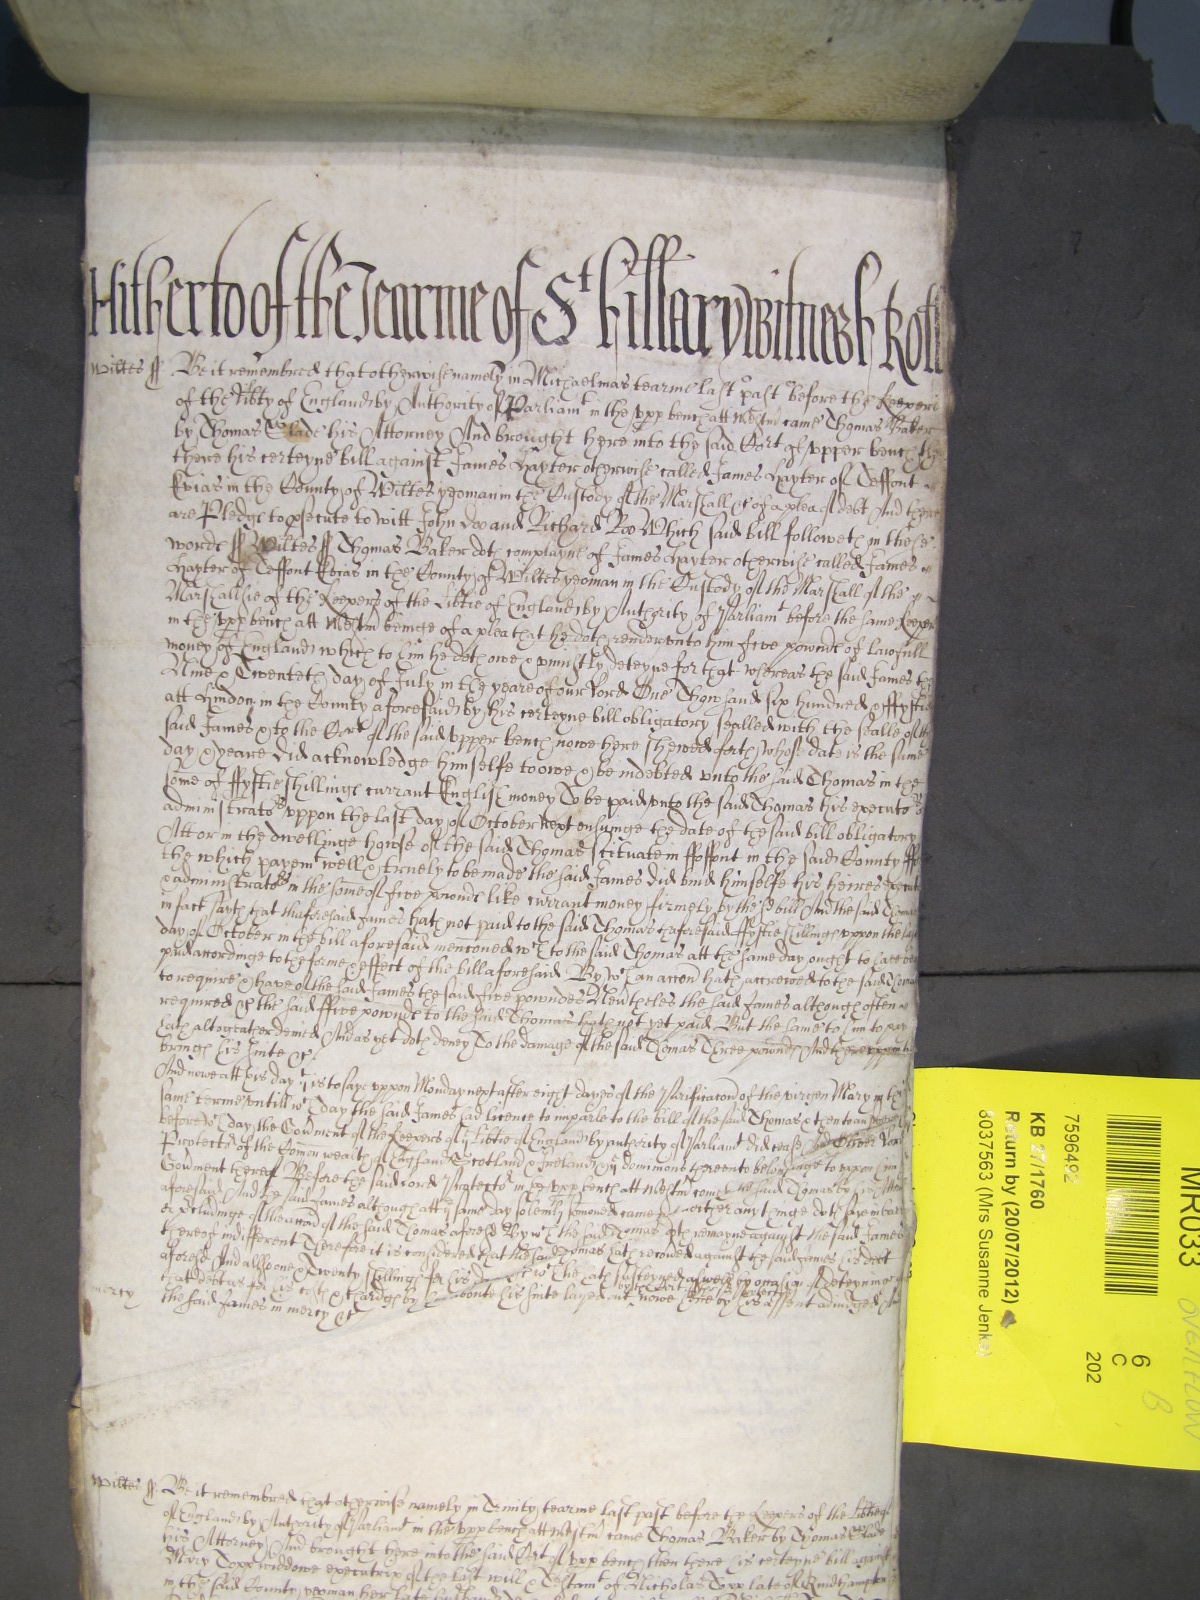 Hitherto of the Tearme of St hillary witnesh Roll
Wiltes ss Be it remembred that otherwise namely in Michaelmas tearme last past before the Keepers
of the libty of England by Authority of Parliamt in the upp bench att Westm came Thomas Baker
by Thomas Slade his Attorney And brought here into the said Cort of upper bench then
there his certeyne bill against James Hayter otherwise called James Hayter of Teffont
Evias in the County of Wiltes yeoman in the Custody of the Marshall &c of a plea of debt And there
are Pledge to psecute to witt John Doo and Richard Roo Which said bill followeth in these
words ss Wiltes ss Thomas Baker doth complayne of James Hayter otherwise called James
Hayter of Teffont Evias in the County of Wiltes yeoman in the Custody of the Marshall of the
Marshallsie of the Keepers of the Libtie of England by Authority of Parliamt before the same Keepers
in the upp bench att Westm beinge of a plea that he doth render unto him five pounds of lawfull
money of England which to him he doth owe & uniustly deteyne for that whereas the said James the
Nine & Twenteth day of July in the yeare of our Lord One Thowsand six hundred & ffyftie
att Hindon in the County aforesaid by his certeyne bill obligatory sealled with the sealle of the
said James & to the Cort of the said upper bench nowe here shewed forth whose date is the same
day & yeare did acknowledge himselfe to owe & be indebted unto the said Thomas in the
some of ffyftie shillings currant English money To be paid unto the said Thomas his executors
administrators uppon the last day of October next ensuinge the date of the said bill obligatory
Att or in the dwellinge howse of the said Thomas scituate in ffoffont in the said County ffor
the which paymt well & truely to be made the said James did bind himselfe his heires execut
& administrators in the some of five pounds like currant money firmely by the sd bill And the said Thomas
in fact sayth that thaforesaid James hath not paid to the said Thomas thaforesaid ffyftie shillings uppon the last
day of October in the bill aforesaid menconed wch to the said Thomas att the same day ought to have been
paid accordinge to the forme & effect of the bill aforesaid By wch an accon hath accrewed to the said Thomas
to require & have of the said James the said five powndes Nevertheles the said James although often
required &c the said ffive pownds to the said Thomas hath not yet paid But the same to him to pay
hath altogeather denied And as yet doth deney To the damage of the said Thomas Three pownds And thereuppon he
brings his suite &c
And nowe att this day yt is to saye uppon Monday next after eight dayes of the Purificacon of the virgen Mary in this
same terme untill wch day the said James had licence to imparle to the bill of the said Thomas & then to answere
before wch day the Govmment of the Keepers of ye Libtie of England by autority of Parliamt did cease And Oliver Lord
Protector of the Comon wealth of England Scotland & Ireland & ye dominions thereto belonginge to uppon him
Govmment thereof Before the said Lord Protector in ye upp bench att Westm cometh the said Thomas by his Attor
aforesaid And the said James although att ye same day solemly sumoned came not neither any thinge doth saye in barr
or excludinge of the accon of the said Thomas aforesd By wch the said Thomas doth remayne against the said James
thereof indifferent Therefore it is considered that the said Thomas hath recoved against the said James his debt
aforesd And allsoe one & Twenty shillings for his wch he hath susteyned aswell by occasion of deteyninge of
that debt as for his costs & chardgs by him aboute his suite layed out nowe here by his assent adiudged And
mercy the said James in mercy &c
Wiltes ss Be it remembred that otherwise namely in Trinity tearme last past before the Keepers of the Libtie of
of England by Authority of Parliamt in the upp bench att Westm came Thomas Baker by Thomas Slade
his Attorney And brought here into the said Cort of upp bench then there his certeyne bill against
Mary Topp widdowe executrix of the last will & Testamt of Nicholas Topp late of
in the said County yeoman her late husband
MR033
7596492
KB 27/1760
Return by (20/07/2012)
8037563 (Mrs Susanne Jenks)
6
C
202
OVERFLOW
B